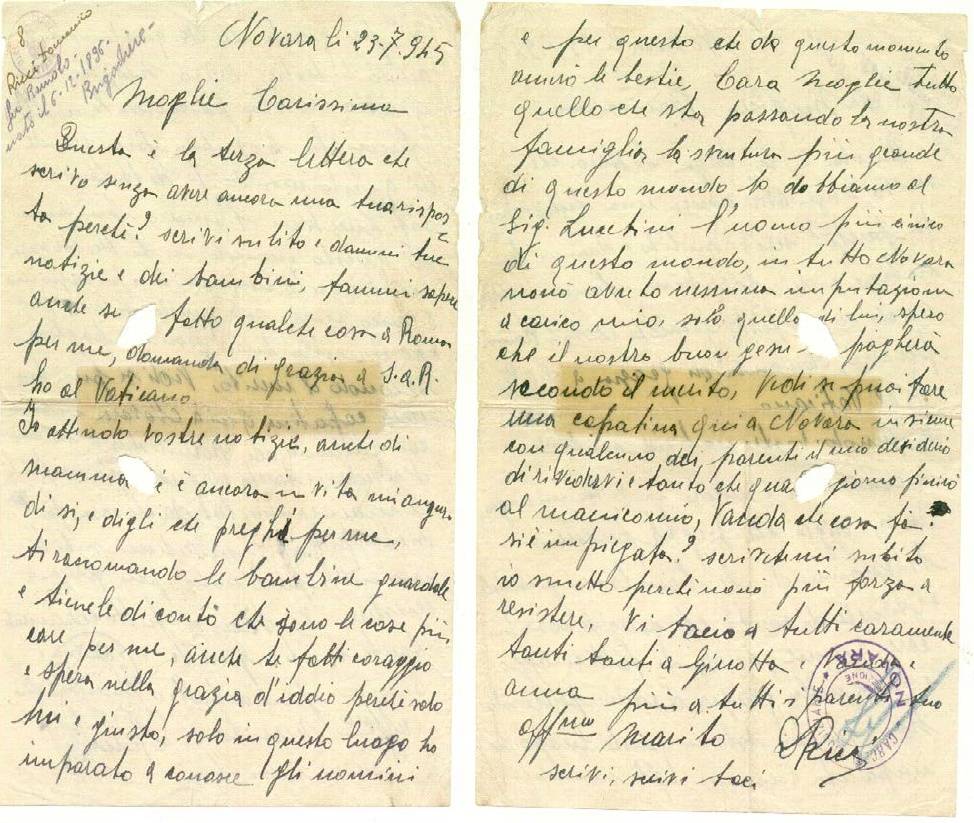 8
Ricci Domenico
fu Romolo
nato il 6-12-1896.
Brigadiere
Novara li 23-7-945
Moglie Carissima
Questa è la terza lettera che
scrivo senza avere ancora una tua rispos=
ta perchè? scrivi subito e dammi tue
notizie e dei bambini, fammi sapere
anche se fatto qualche cosa a Roma
per me, domanda di grazia a S.A.R.
ho al Vaticano.
Io attendo vostre notizie, anche di
mamma è ancora in vita mi auguro
di si, e digli che preghi per me,
ti racomando le bambine guardale
e tienele di conto che sono le cose più
care per me, anche te fatti coraggio
e spera nella grazia d'iddio perchè solo
lui e giusto, solo in questo luogo ho
imparato a conosce gli uomini
e per questo che da questo momento
amerò le bestie, Cara Moglie tutto
quello che sta passando la nostra
famiglia la sventura più grande
di questo mondo lo dobbiamo al
Sig. l'uomo più cinico
di questo mondo, in tutto Novara
nonò avuto nessuna imputazione
a carico mio, solo quella di lui, spero
che il nostro buon gesu pagherà
secondo il merito, Vedi se puoi fare
una capatina qui a Novara insieme
con qualcuno dei parenti il mio desiderio
di rivedervi e tanto che giorno finirò
al manicomio, Vanda che cosa fà?
si è impiegata? scrivetemi subito
io smetto perchè nonò più forza a
resistere, Vi bacio a tutti caramente
tanti tanti a Ginotta e
anna più a tutti i parenti tuo
aff.mo Marito
Ricci
scrivi, scrivi baci
NOVARA